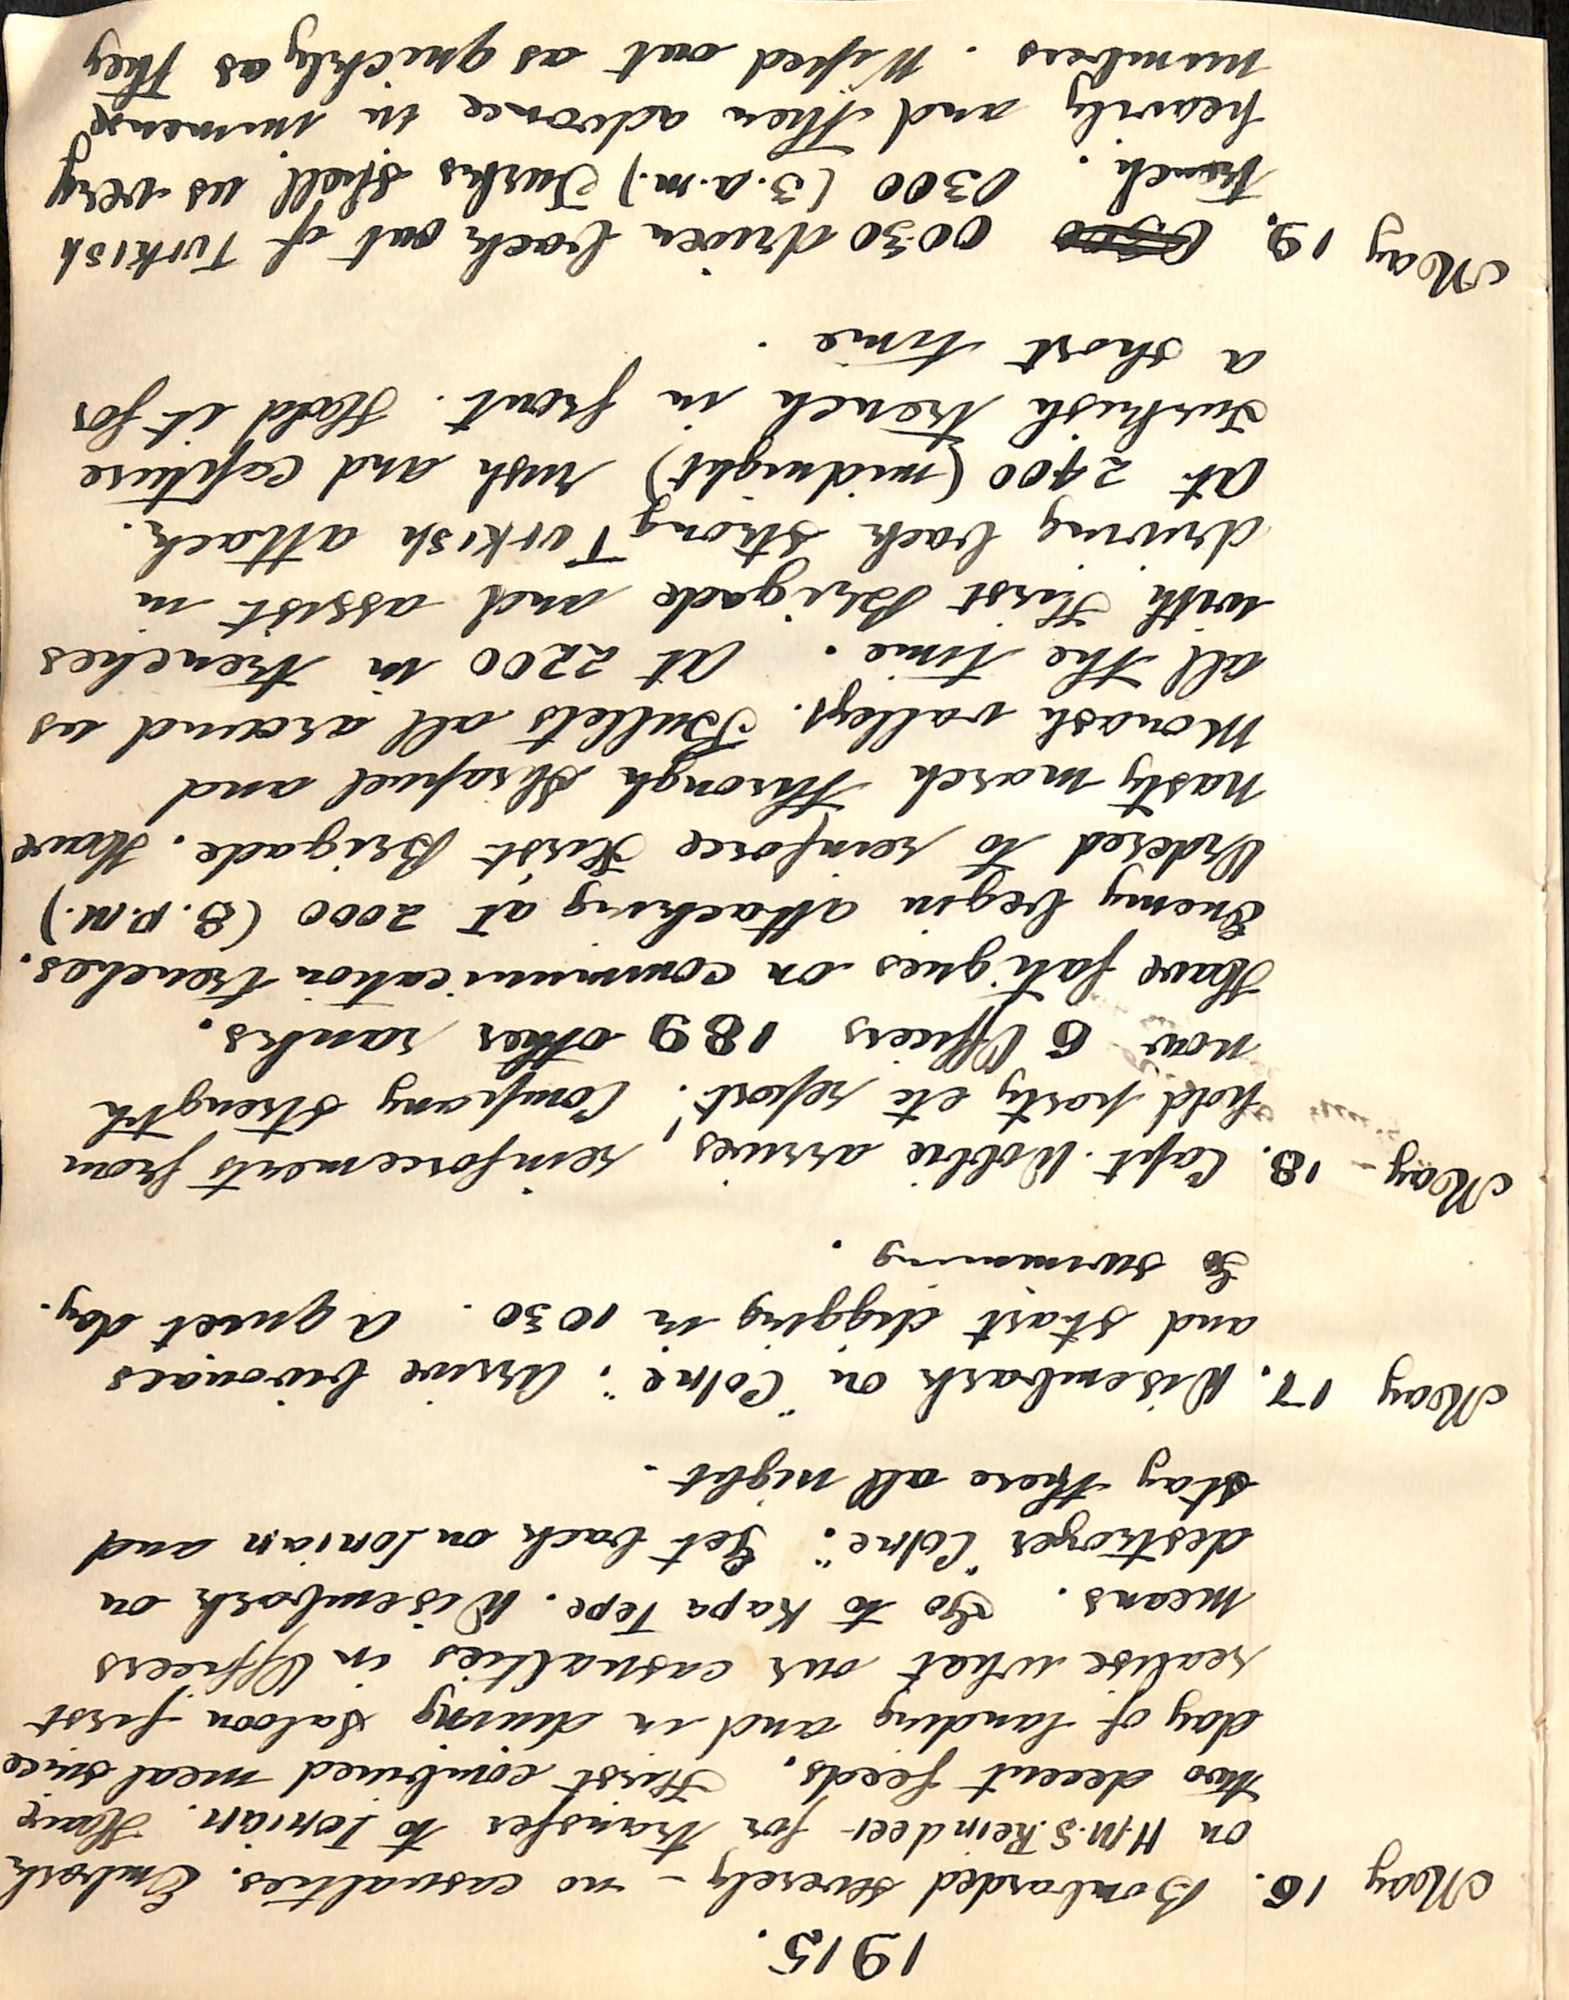 1915.
May 16. Bombarded severely - no casualties. Embark
on H.M.S. Reindeer for transfer to Ionian. Have
two decent feeds. First combined meal since
day of landing and in dining saloon first
realise what our casualties in Officers
means. Go to Kapa Tepe. Disembark on
destroyer "Colne". Get back on Ionian and
stay there all night.
May 17. Disembark on "Colne". Arrive bivouacs
and start digging in 1030. A quiet day.
Go swimming.
May - 18. Capt. Hobbie arrives, reinforcements from
hold party etc report. Company strength
now 6 Officers 189 other ranks.
Have fatigues on communication trenches.
Enemy begin attacking at 2000 (8.P.M.)
Ordered to reinforce First Brigade. Have
nasty march through Shrapnel and
Monash valleys. Bullets all around us
all the time. At 2200 in trenches
with First Brigade and assist in
driving back strong Turkish attack.
At 2400 (midnight) rush and capture
Turkish trench in front. Hold it for
a short time.
May 19. 0300 0030 driven back out of Turkish
trench. 0300 (3.a.m.) Turks shell us very
heavily and then advance in immense
numbers. Wiped out as quickly as they